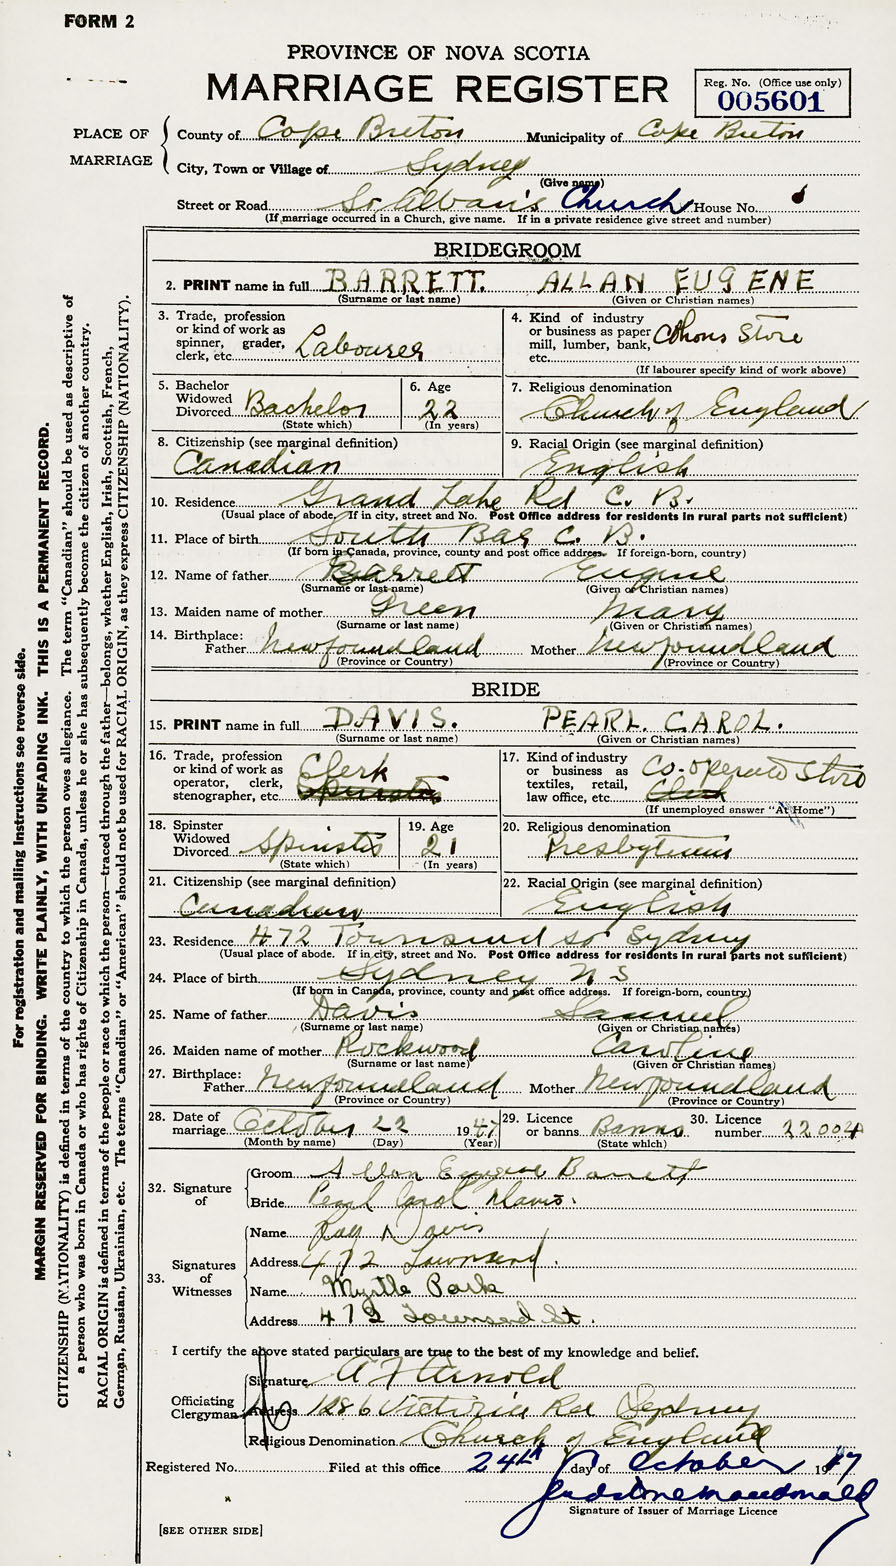 FORM 2
PROVINCE OF NOVA SCOTIA
MARRIAGE REGISTER
Reg. No. (Office use only)
005601
PLACE OF MARRIAGE
County of Cape Breton Municipality of Cape Breton
City, Town or Village of Sydney
(Give name)
Street or Road St Alban's Church House No.
(If marriage occurred in a Church, give name. If in a private residence give street and number)
BRIDEGROOM
2. PRINT name in full BARRETT. ALLAN EUGENE
(Surname or last name) (Given or Christian names)
3. Trade, profession or kind of work as spinner, grader, clerk, etc. Labourer
4. Kind of industry or business as paper mill, lumber, bank, etc. Cohons Store
(If labourer specify kind of work above)
5. Bachelor Widowed Divorced Bachelor
(State which)
6. Age 22
(In years)
7. Religious denomination
Church of England
8. Citizenship (see marginal definition)
Canadian
9. Racial Origin (see marginal definition)
English
10. Residence Grand Lake Rd C. B.
(Usual place of abode. If in city, street and No. Post Office address for residents in rural parts not sufficient)
11. Place of birth South Bar C. B.
(If born in Canada, province, county and post office address. If foreign-born, country)
12. Name of father Barrett Eugene
(Surname or last name) (Given or Christian names)
13. Maiden name of mother Green Mary
(Surname or last name) (Given or Christian names)
14. Birthplace:
Father Newfoundland Mother Newfoundland
(Province or Country) (Province or Country)
BRIDE
15. PRINT name in full DAVIS. PEARL. CAROL.
(Surname or last name) (Given or Christian names)
16. Trade, profession or kind of work as operator, clerk, stenographer, etc. Clerk
Spinster
17. Kind of industry or business as textiles, retail, law office, etc. Co. operate Store
Clerk
(If unemployed answer "At Home")
18. Spinster Widowed Divorced Spinster
(State which)
19. Age 21
(In years)
20. Religious denomination
Presbyterian
21. Citizenship (see marginal definition)
Canadian
22. Racial Origin (see marginal definition)
English
23. Residence 472 Townsend St Sydney
(Usual place of abode. If in city, street and No. Post Office address for residents in rural parts not sufficient)
24. Place of birth Sydney N S
(If born in Canada, province, county and post office address. If foreign-born, country)
25. Name of father Davis Samuel
(Surname or last name) (Given or Christian names)
26. Maiden name of mother Rockwood Caroline
(Surname or last name) (Given or Christian names)
27. Birthplace:
Father Newfoundland Mother Newfoundland
(Province or Country) (Province or Country)
28. Date of marriage October 22 1947
(Month by name) (Day) (Year)
29. Licence or banns Banns
(State which)
30. Licence number 22004
32. Signature of
Groom Allan Eugene Barrett
Bride Pearl Carol Davis.
33. Signatures of Witnesses
Name Ray Davis
Address 472 Townsend.
Name Myrtle Park
Address 472 Townsend St.
I certify the above stated particulars are true to the best of my knowledge and belief.
Officiating Clergyman
Signature A F Arnold
Address 1286 Victoria Rd Sydney
Religious Denomination Church of England
Registered No. Filed at this office 24th day of October 1947
Signature of Issuer of Marriage Licence
[SEE OTHER SIDE]
For registration and mailing instructions see reverse side.
MARGIN RESERVED FOR BINDING. WRITE PLAINLY, WITH UNFADING INK. THIS IS A PERMANENT RECORD.
CITIZENSHIP (NATIONALITY) is defined in terms of the country to which the person owes allegiance. The term "Canadian" should be used as descriptive of
a person who was born in Canada or who has rights of Citizenship in Canada, unless he or she has subsequently become the citizen of another country.
RACIAL ORIGIN is defined in terms of the people or race to which the person—traced through the father—belongs, whether English, Irish, Scottish, French,
German, Russian, Ukrainian, etc. The terms "Canadian" or "American" should not be used for RACIAL ORIGIN, as they express CITIZENSHIP (NATIONALITY).